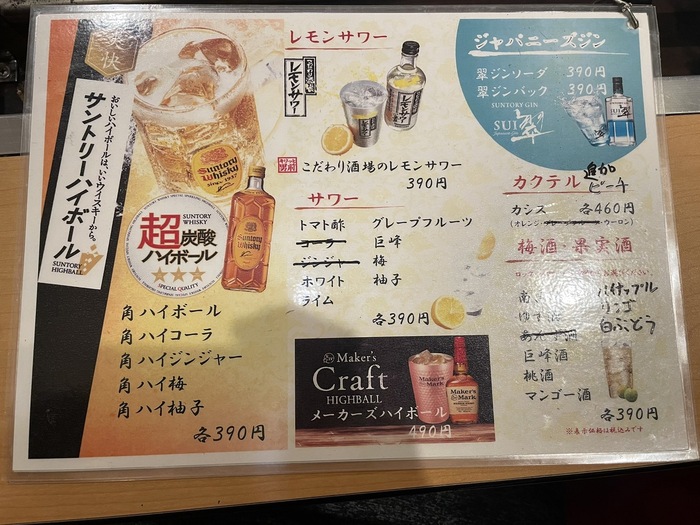 爽快
おいしいハイボールは、いいウイスキーから。
サントリーハイボール
SUNTORY
HIGHBALL
Suntory
Whisky
since 1937
SUNTORY
WHISKY
超炭酸
ハイボール
SPECIAL QUALITY
角ハイボール
角ハイコーラ
角ハイジンジャー
角ハイ梅
角ハイ柚子
各390円
レモンサワー
こだわり酒場の
レモンサワー
こだわり酒場のレモンサワー
390円
サワー
トマト酢 グレープフルーツ
コーラ 巨峰
ジンジャー 梅
ホワイト 柚子
ライム
各390円
Maker's
Craft
HIGHBALL
メーカーズハイボール
490円
Maker's
Mark
ジャパニーズジン
翠ジンソーダ 390円
翠ジンバック 390円
SUNTORY GIN
SUI 翠
カクテル 追加 ピーチ
カシス 各460円
(オレンジ・ ・ウーロン)
梅酒・果実酒
パイナップル
リンゴ
白ぶどう
巨峰酒
桃酒
マンゴー酒
各390円
※表示価格は税込みです